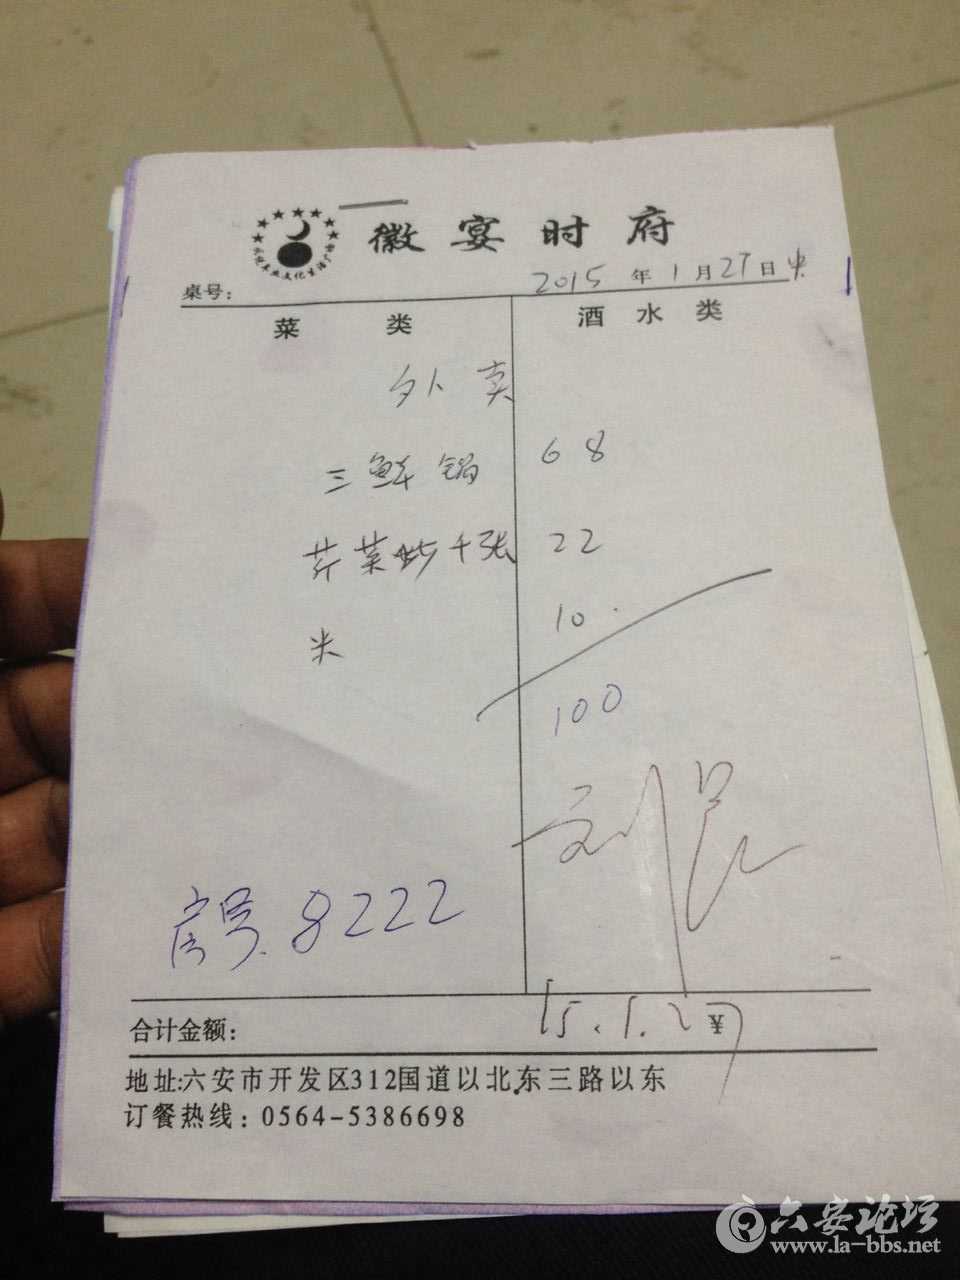 徽宴时府
桌号： 2015 年 1 月 27 日 中
菜 类 酒 水 类
外卖
三鲜锅 68
芹菜炒千张 22
米 10.
100
刘
房号. 8222
合计金额： 15.1.27 ¥
地址:六安市开发区312国道以北东三路以东
订餐热线：0564-5386698
六安论坛
www.la-bbs.net